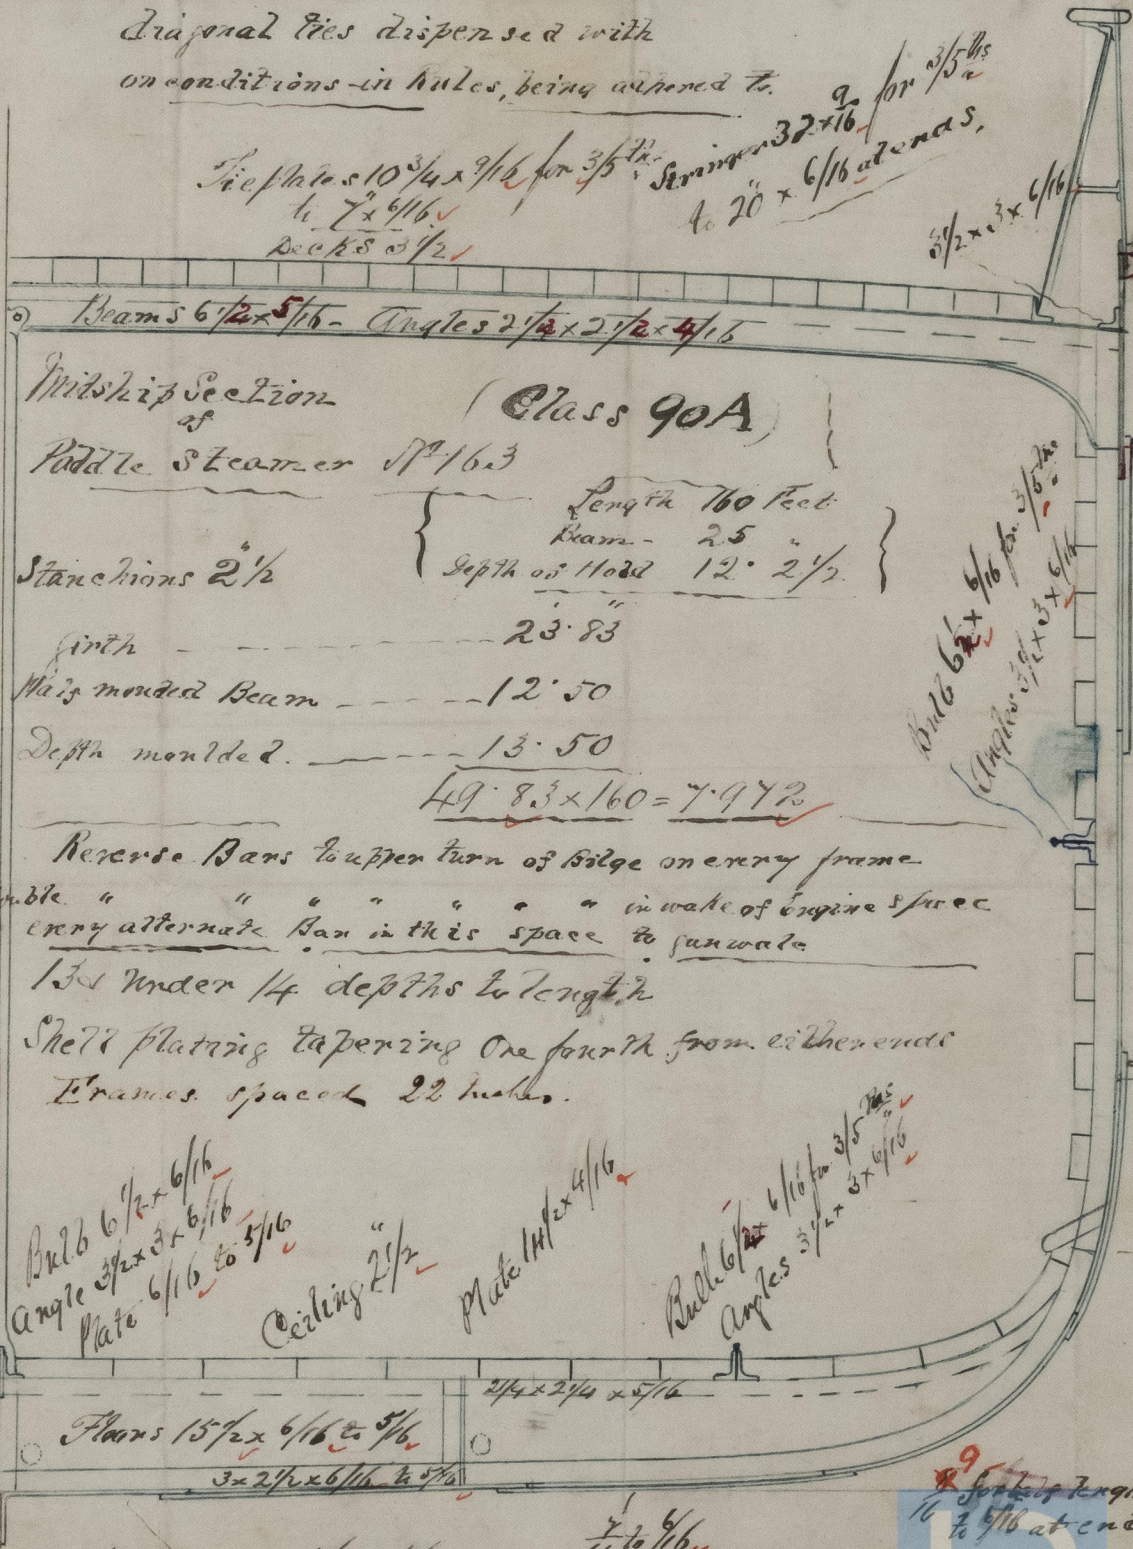 diagonal ties dispensed with
on conditions in Rules, being adhered to.
Tieplates 10 3/4 x 9/16 for 3/5ths
to 7" x 6/16
Decks 3 1/2
Stringer 32 x 9/16 for 3/5ths
to 20" x 6/16 at ends.
3 1/2 x 3 x 6/16
Beams 6 1/2 x 5/16 - Angles 2 1/2 x 2 1/2 x 4/16
Midship Section
of
Paddle Steamer No 163
(Class 90A)
Length 160 Feet
Beam - 25 "
Depth of Hold 12' 2 1/2
Stanchions 2" 1/2
Girth 23.83
Half moulded Beam 12.50
Depth moulded. 13.50
49.83 x 160 = 7.972
Bulb 6 1/2 x 6/16 for 3/5ths
Angles 3 1/2 x 3 x 6/16
Reverse Bars to upper turn of Bilge on every frame
" " " " " " " in wake of Engine space
every alternate Bar in this space to gunwale
Under 14 depths to length
Shell plating tapering One fourth from either ends
Frames spaced 22 Inches.
Bulb 6 1/2 x 6/16
Angle 3 1/2 x 3 x 6/16
Plate 6/16 to 5/16
Ceiling 2" 1/2
Plate 14 1/2 x 4/16
Bulb 6 1/2 x 6/16 for 3/5ths
Angles 3 1/2 x 3 x 6/16
2 1/4 x 2 1/4 x 5/16
Floors 15 1/2 x 6/16 to 5/16
3 x 2 1/2 x 6/16 to 5/16
9/16
to 6/16 at
to 6/16